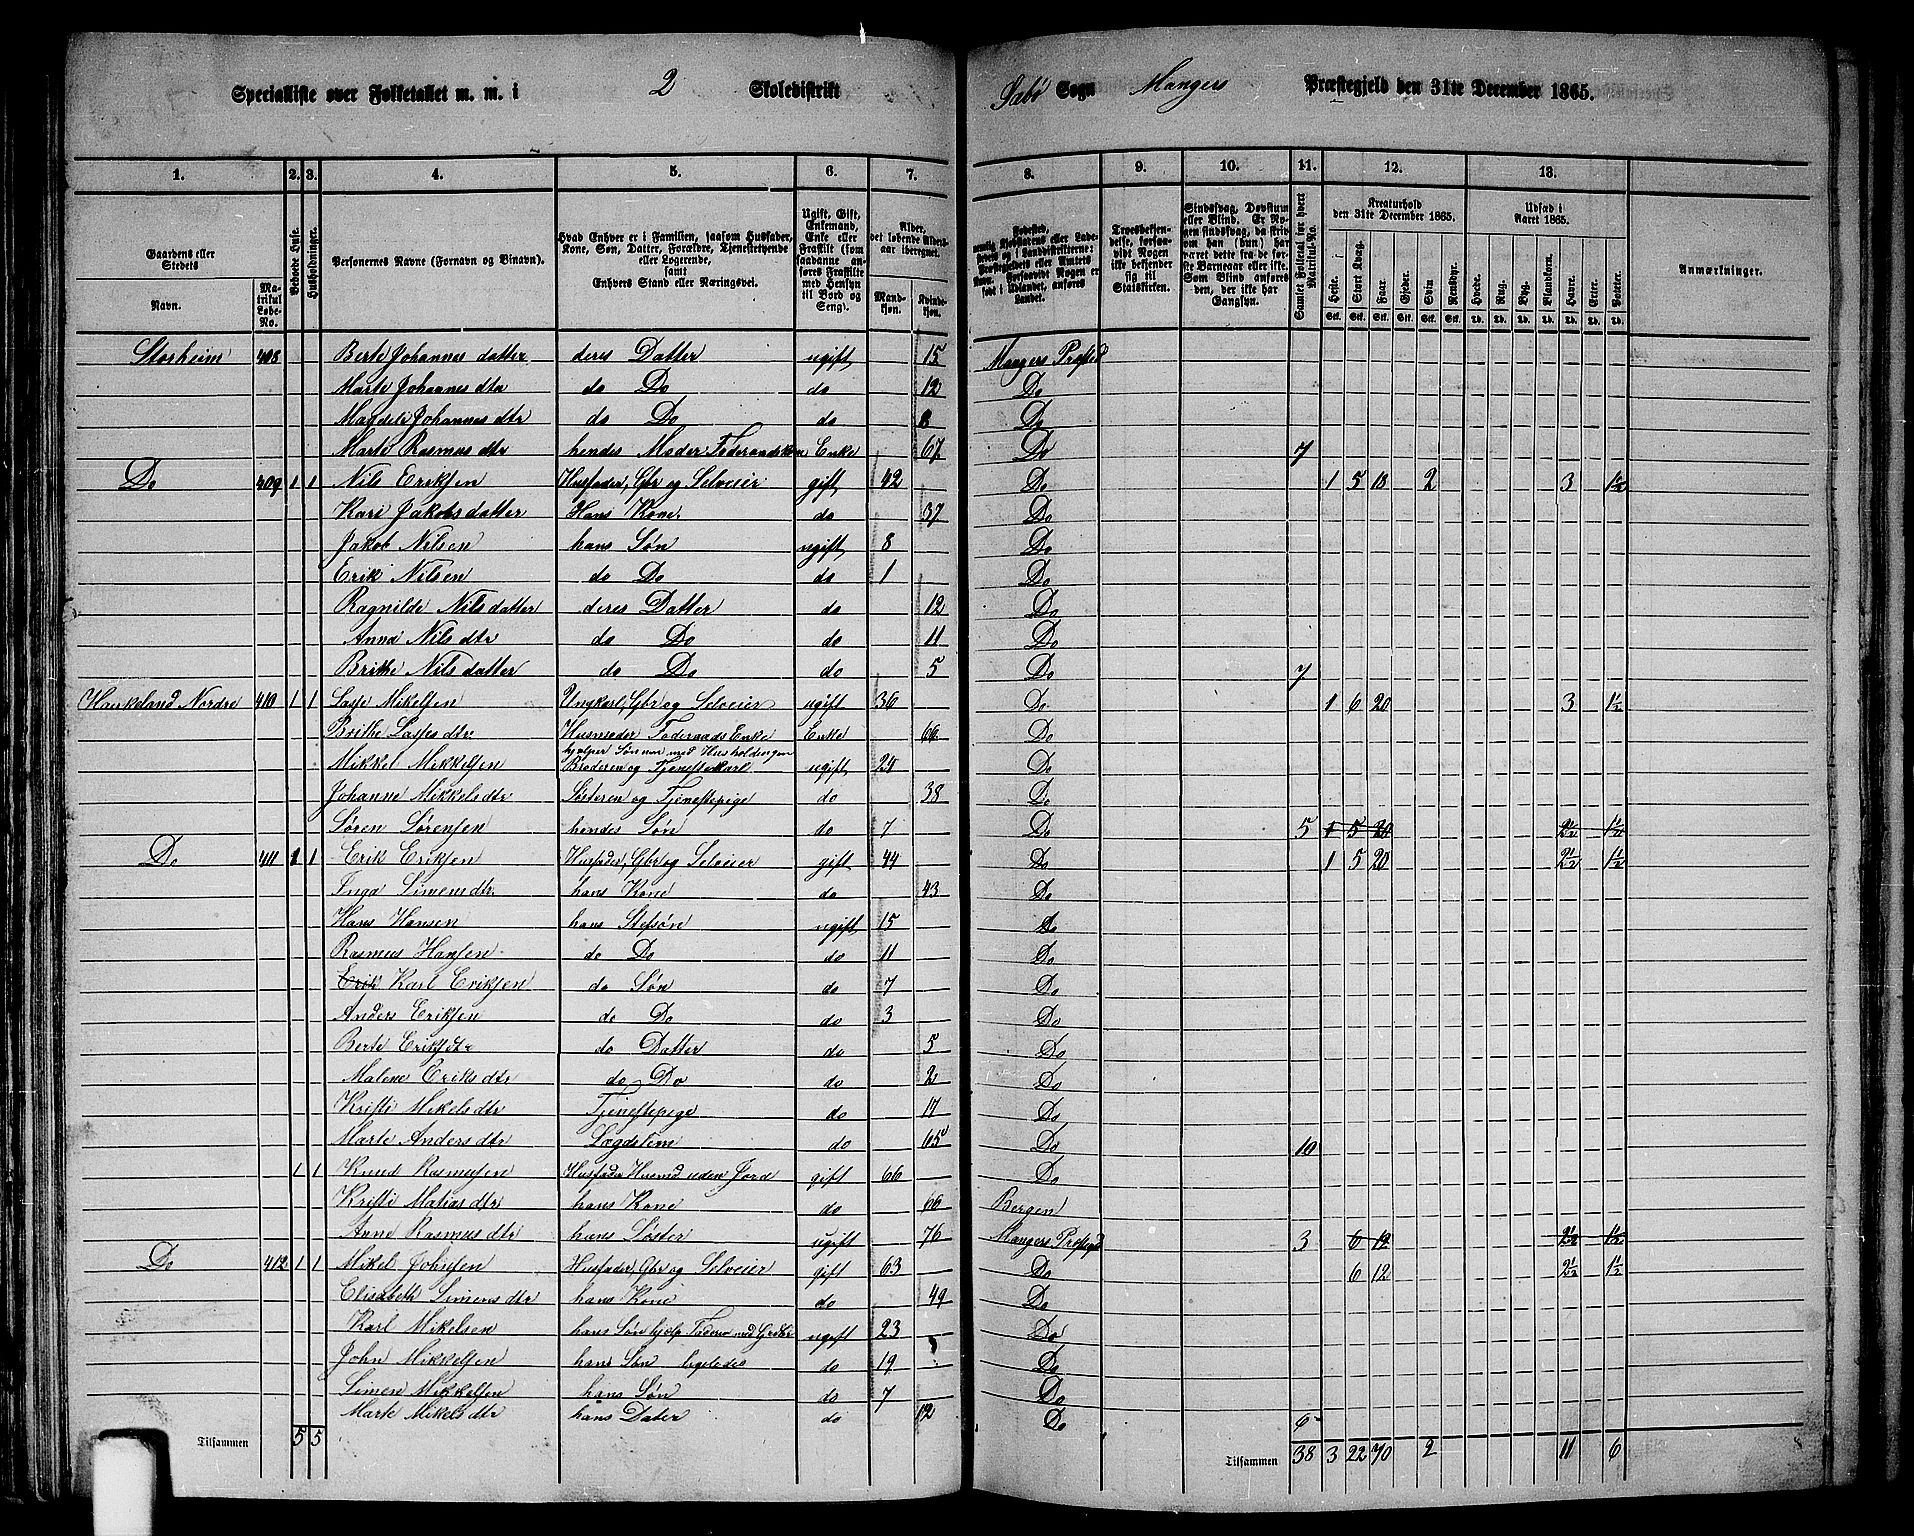 Specialliste over Folketallet m. m. i 2 Skoledistrikt Sæbø Sogn Mangers Præstegjeld den 31te December 1865.
1. 2. 3. 4. 5. 6. 7. 8. 9. 10. 11. 12. 13.
Gaardens eller Stedets Navn. Matrikul Løbe-No. Beboede Huse. Husholdninger. Personernes Navne (Fornavn og Binavn). Hvad Enhver er i Familien, saasom Husfader, Kone, Søn, Datter, Forældre, Tjenestetyende eller Logerende, samt Enhvers Stand eller Næringsvei. Ugift, Gift, Enkemand, Enke eller Fraskilt (som saadanne anføres Fraskilte med Hensyn til Bord og Seng). Alder, det løbende Aldersaar iberegnet. Mandkjøn. Kvindekjøn.
Troesbekjendelse, forsaavidt Nogen ikke bekjender sig til Statskirken. Samlet Folketal for hvert Matrikul-No. Kreaturhold den 31te December 1865. Heste. Stort Kvæg. Faar. Gjeder. Svin. Rensdyr. Udsæd i Aaret 1865. Hvede. Rug. Byg. Blandkorn. Havre. Erter. Poteter. Anmærkninger.
Storheim 408 Berte Johannes datter deres Datter ugift 15 Mangers Præstgd
Marte Johannes dtr do Do do 12 Do
Magdeli Johannes dtr do Do do 8 Do
Marte Rasmus dtr hendes Moder Føderaadskone Enke 67 Do 7
Do 409 1 1 Nils Eriksen Husfader, Gbr og Selveier gift 42 Do 1 5 18 2 3 1½
Kari Jakobs datter Hans Kone do 37 Do
Jakob Nilsen hans Søn ugift 8 Do
Erik Nilsen do Do do 1 Do
Ragnilde Nils datter deres Datter do 12 Do
Anna Nils dtr do Do do 11 Do
Brithe Nils datter do Do do 5 Do 7
Haukeland Nordre 410 1 1 Lasse Mikelsen Ungkarl, Gbr og Selveier ugift 36 Do 1 6 20 3 1½
Brithe Lasses dtr Husmoder Føderaads Enke Enke 66 Do
hjelper Sønnen med Husholdningen
Mikkel Mikkelsen Broderen og Tjenestekarl ugift 24 Do
Johanne Mikkels dtr Søsteren og Tjenestepige do 38 Do
Søren Sørensen hendes Søn do 7 Do 5 1 5 20 2½ 1½
Do 411 1 1 Erik Eriksen Husfader, Gbr og Selveier gift 44 Do 1 5 20 2½ 1½
Inga Simens dtr hans Kone do 43 Do
Hans Hansen hans Stefsøn ugift 15 Do
Rasmus Hansen do Do do 11 Do
Erik Karl Eriksen do Søn do 7 Do
Anders Eriksen do Do do 3 Do
Berte Eriks dtr do Datter do 5 Do
Malene Eriks dtr do Do do 2 Do
Kristi Mikels dtr Tjenestepige do 17 Do
Marte Anders dtr Lægdslem do 65 Do 10
1 1 Knud Rasmusen Husfader Husmd uden Jord gift 66 Do
Kristi Matias dtr hans Kone do 66 Bergen
Anne Rasmus dtr hans Søster ugift 76 Mangers Præstgd 3 6 12 2½ 1½
Do 412 1 1 Mikel Johnsen Husfader, Gbr og Selveier gift 63 Do 6 12 2½ 1½
Elisabeth Simens dtr hans Kone do 49 Do
Karl Mikelsen hans Søn hjelp Faderen med ugift 23 Do
John Mikkelsen hans Søn ligeledes do 19 Do
Simen Mikkelsen hans Søn do 7 Do
Marte Mikels dtr hans Dater do 12 Do 6
Tilsammen 5 5 Tilsammen 38 3 22 70 2 11 6